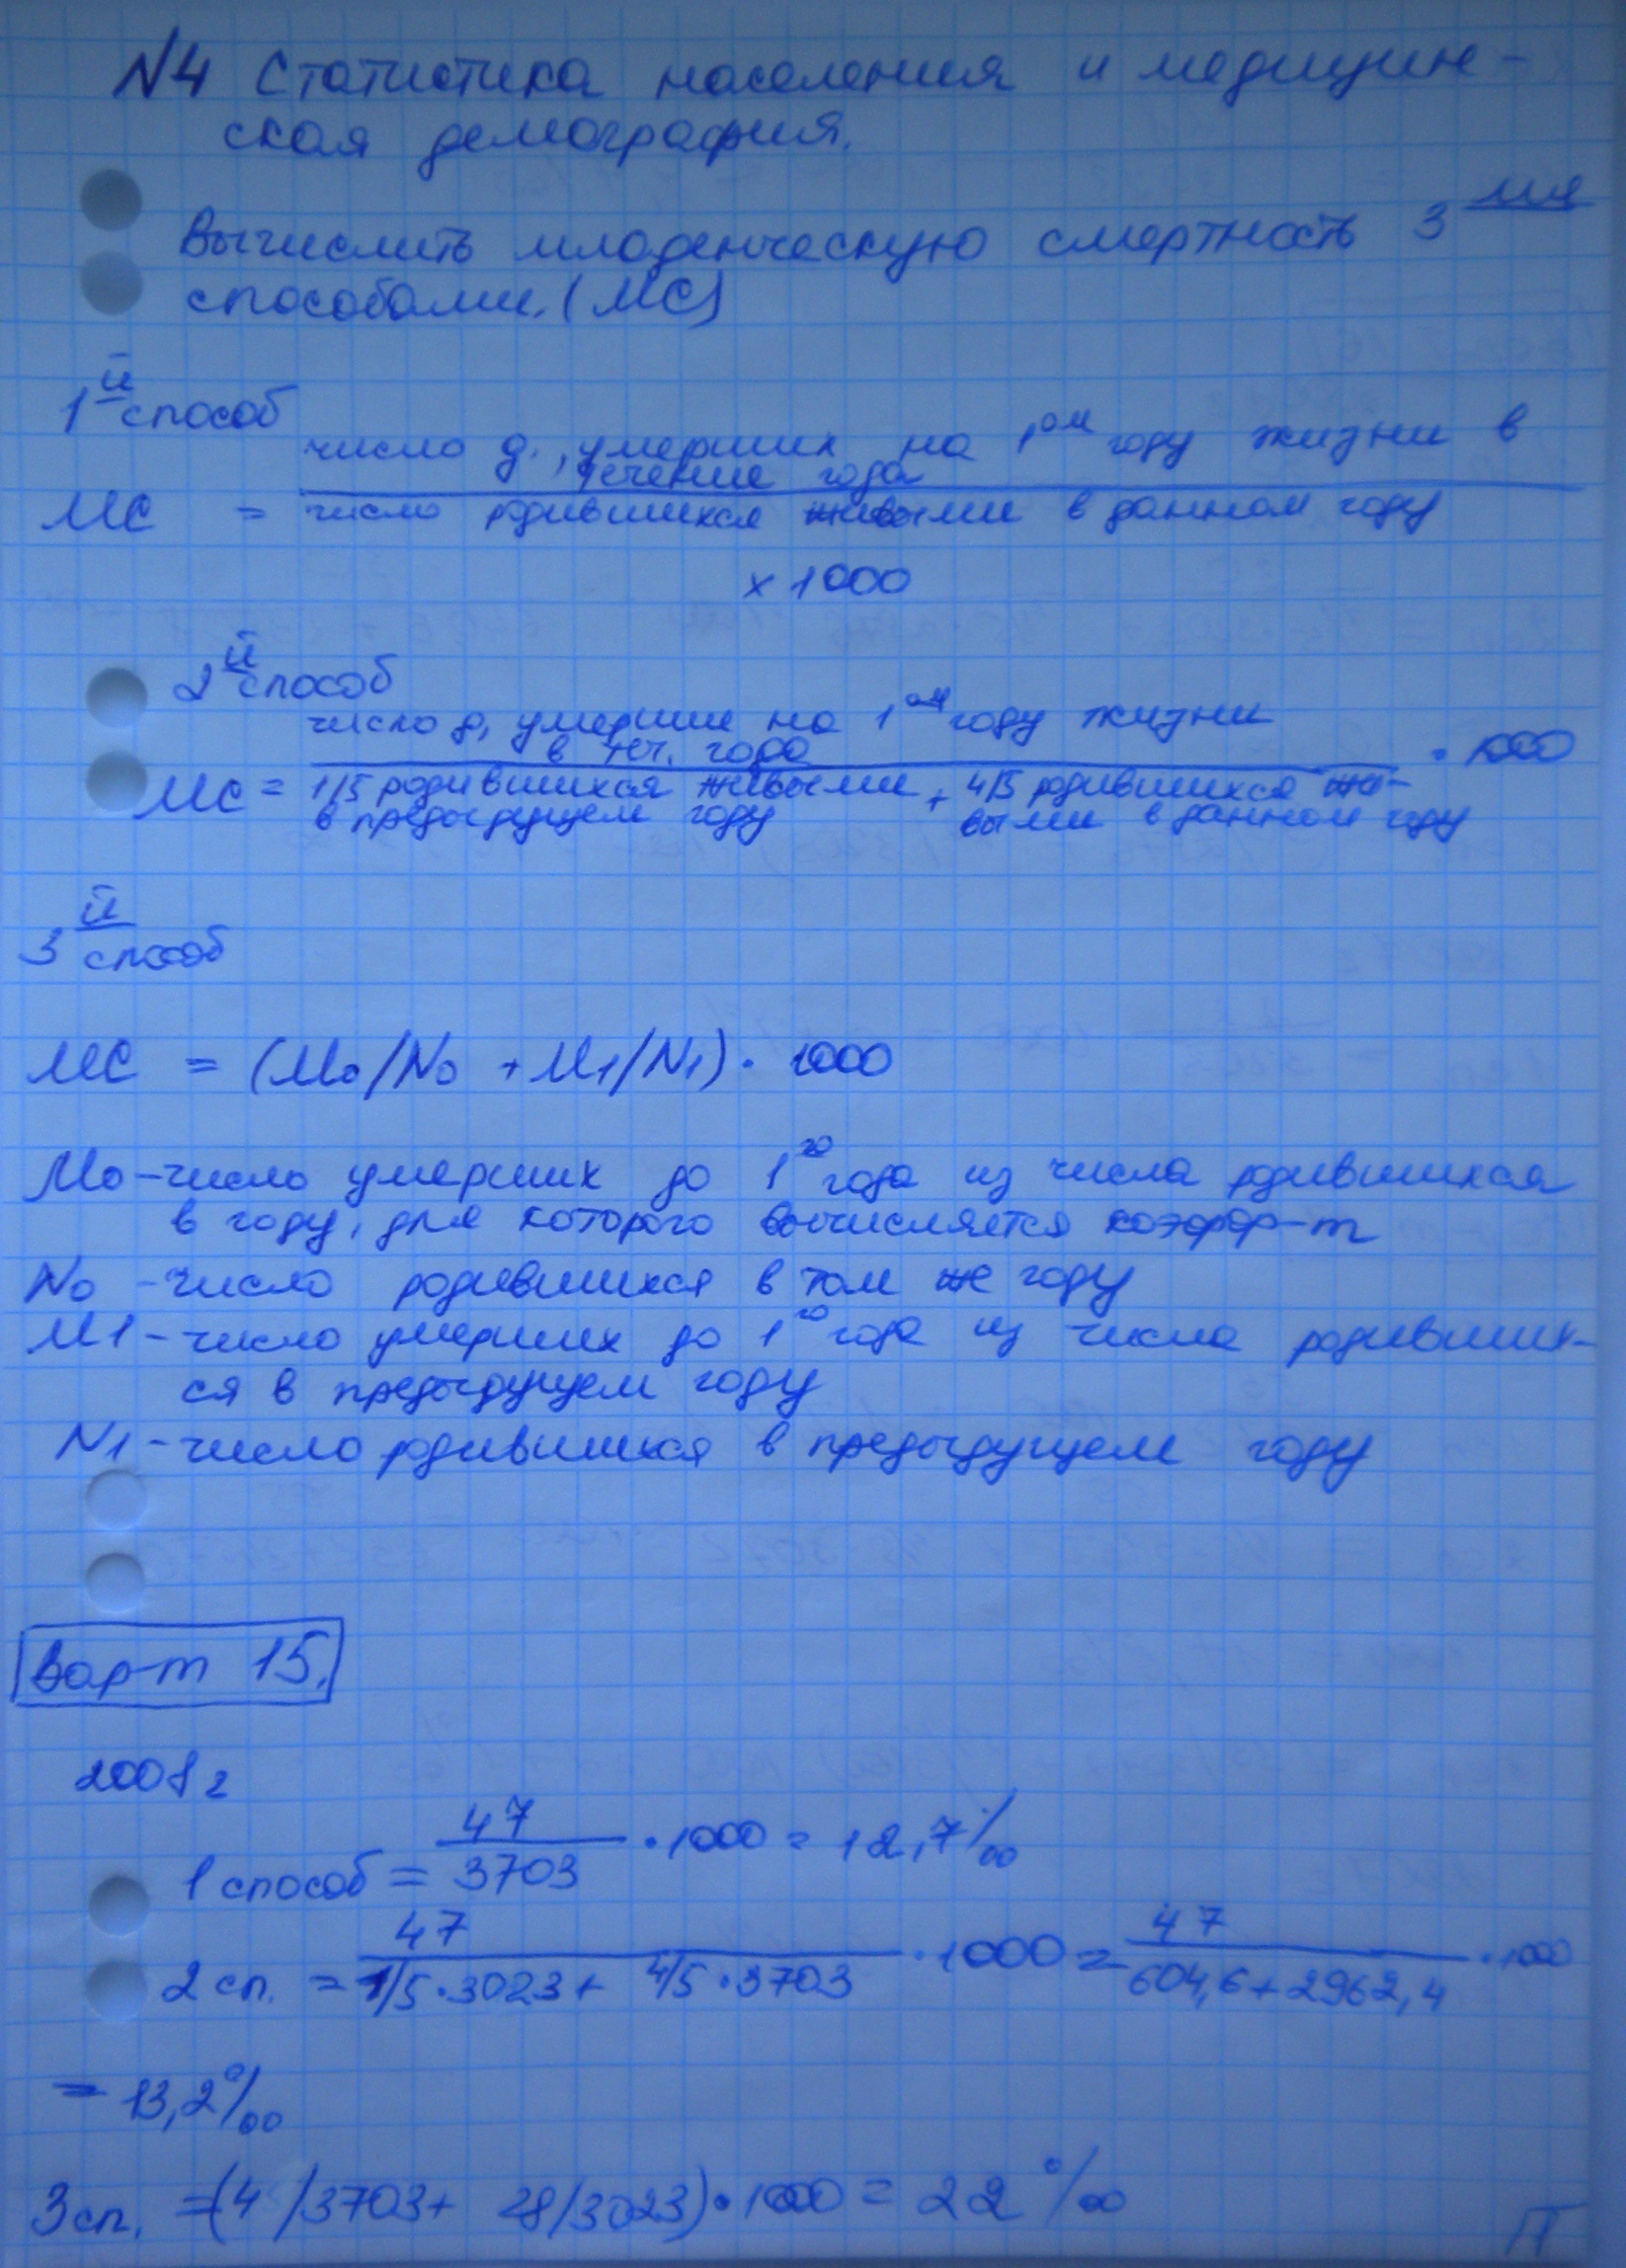 №4 Статистика населения и медицин-
ская демография.
Вычислить младенческую смертность 3 мя
способами. (МС)
1 й способ
число д., умерших на 1ом году жизни в
течение года
МС = число родившихся живыми в данном году
х 1000
2 й способ
число д, умершие на 1ом году жизни
в теч. года · 1000
МС = 1/5 родившихся живыми + 4/5 родившихся жи-
в предыдущем году выми в данном году
3 й способ
МС = (М0/N0 + М1/N1) · 1000
М0 - число умерших до 1го года из числа родившихся
в году, для которого вычисляется коэфф-т
N0 - число родившихся в том же году
М1 - число умерших до 1го года из числа родивших-
ся в предыдущем году
N1 - число родившихся в предыдущем году
Вар-т 15.
2008 г
47
1 способ = 3703 · 1000 = 12,7‰
47 47
2 сп. = 1/5·3023 + 4/5·3703 · 1000 = 604,6 + 2962,4 · 1000
= 13,2‰
3 сп. = (4 /3703 + 28/3023) · 1000 = 22‰